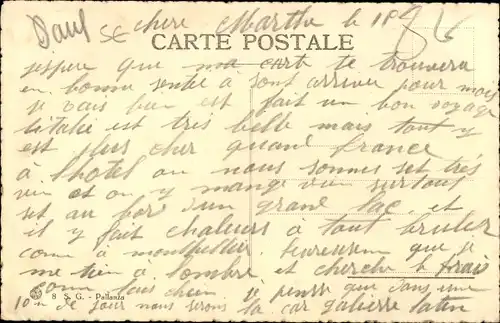 chere Marthe le 18
CARTE POSTALE
jespere que ma carte te trouvera
en bonne sente a sont arriver pour moi
je vais bien est fait un bon voyage
litalie est tres belle mais tout y
est plus cher quand france
à lhotel ou nous sonnes set très
bien et on y mange bien surtout
set au bor dun grand lac et
il y fait chaleurs a tout bruler
come a montpellier heureusem que je
me tien a lombre et cherche le frais
come tous chien je pense que dans une
10n de jour nous serons la car
8 S. G. - Pallanza